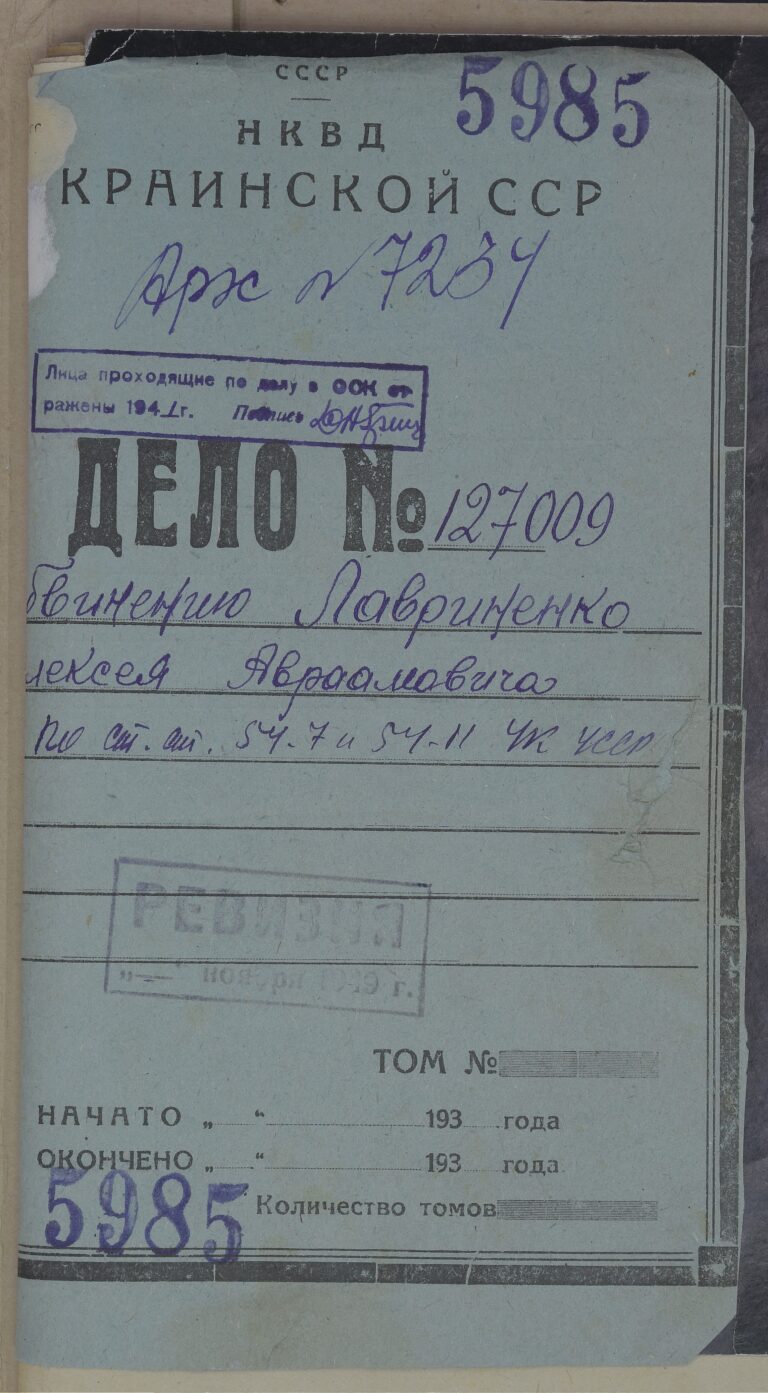 СССР
5985
НКВД
КРАИНСКОЙ ССР
Арх № 7234
Лица проходящие по делу в ООК от
ражены 1941 г. Подпись
ДЕЛО № 127009
бвинению Лавриненко
лексея Авраамовича
по ст. ст. 54-7 и 54-11 УК УССР
РЕВИЗИЯ
г.
ТОМ №
НАЧАТО „ “ 193 года
ОКОНЧЕНО „ “ 193 года
5985
Количество томов